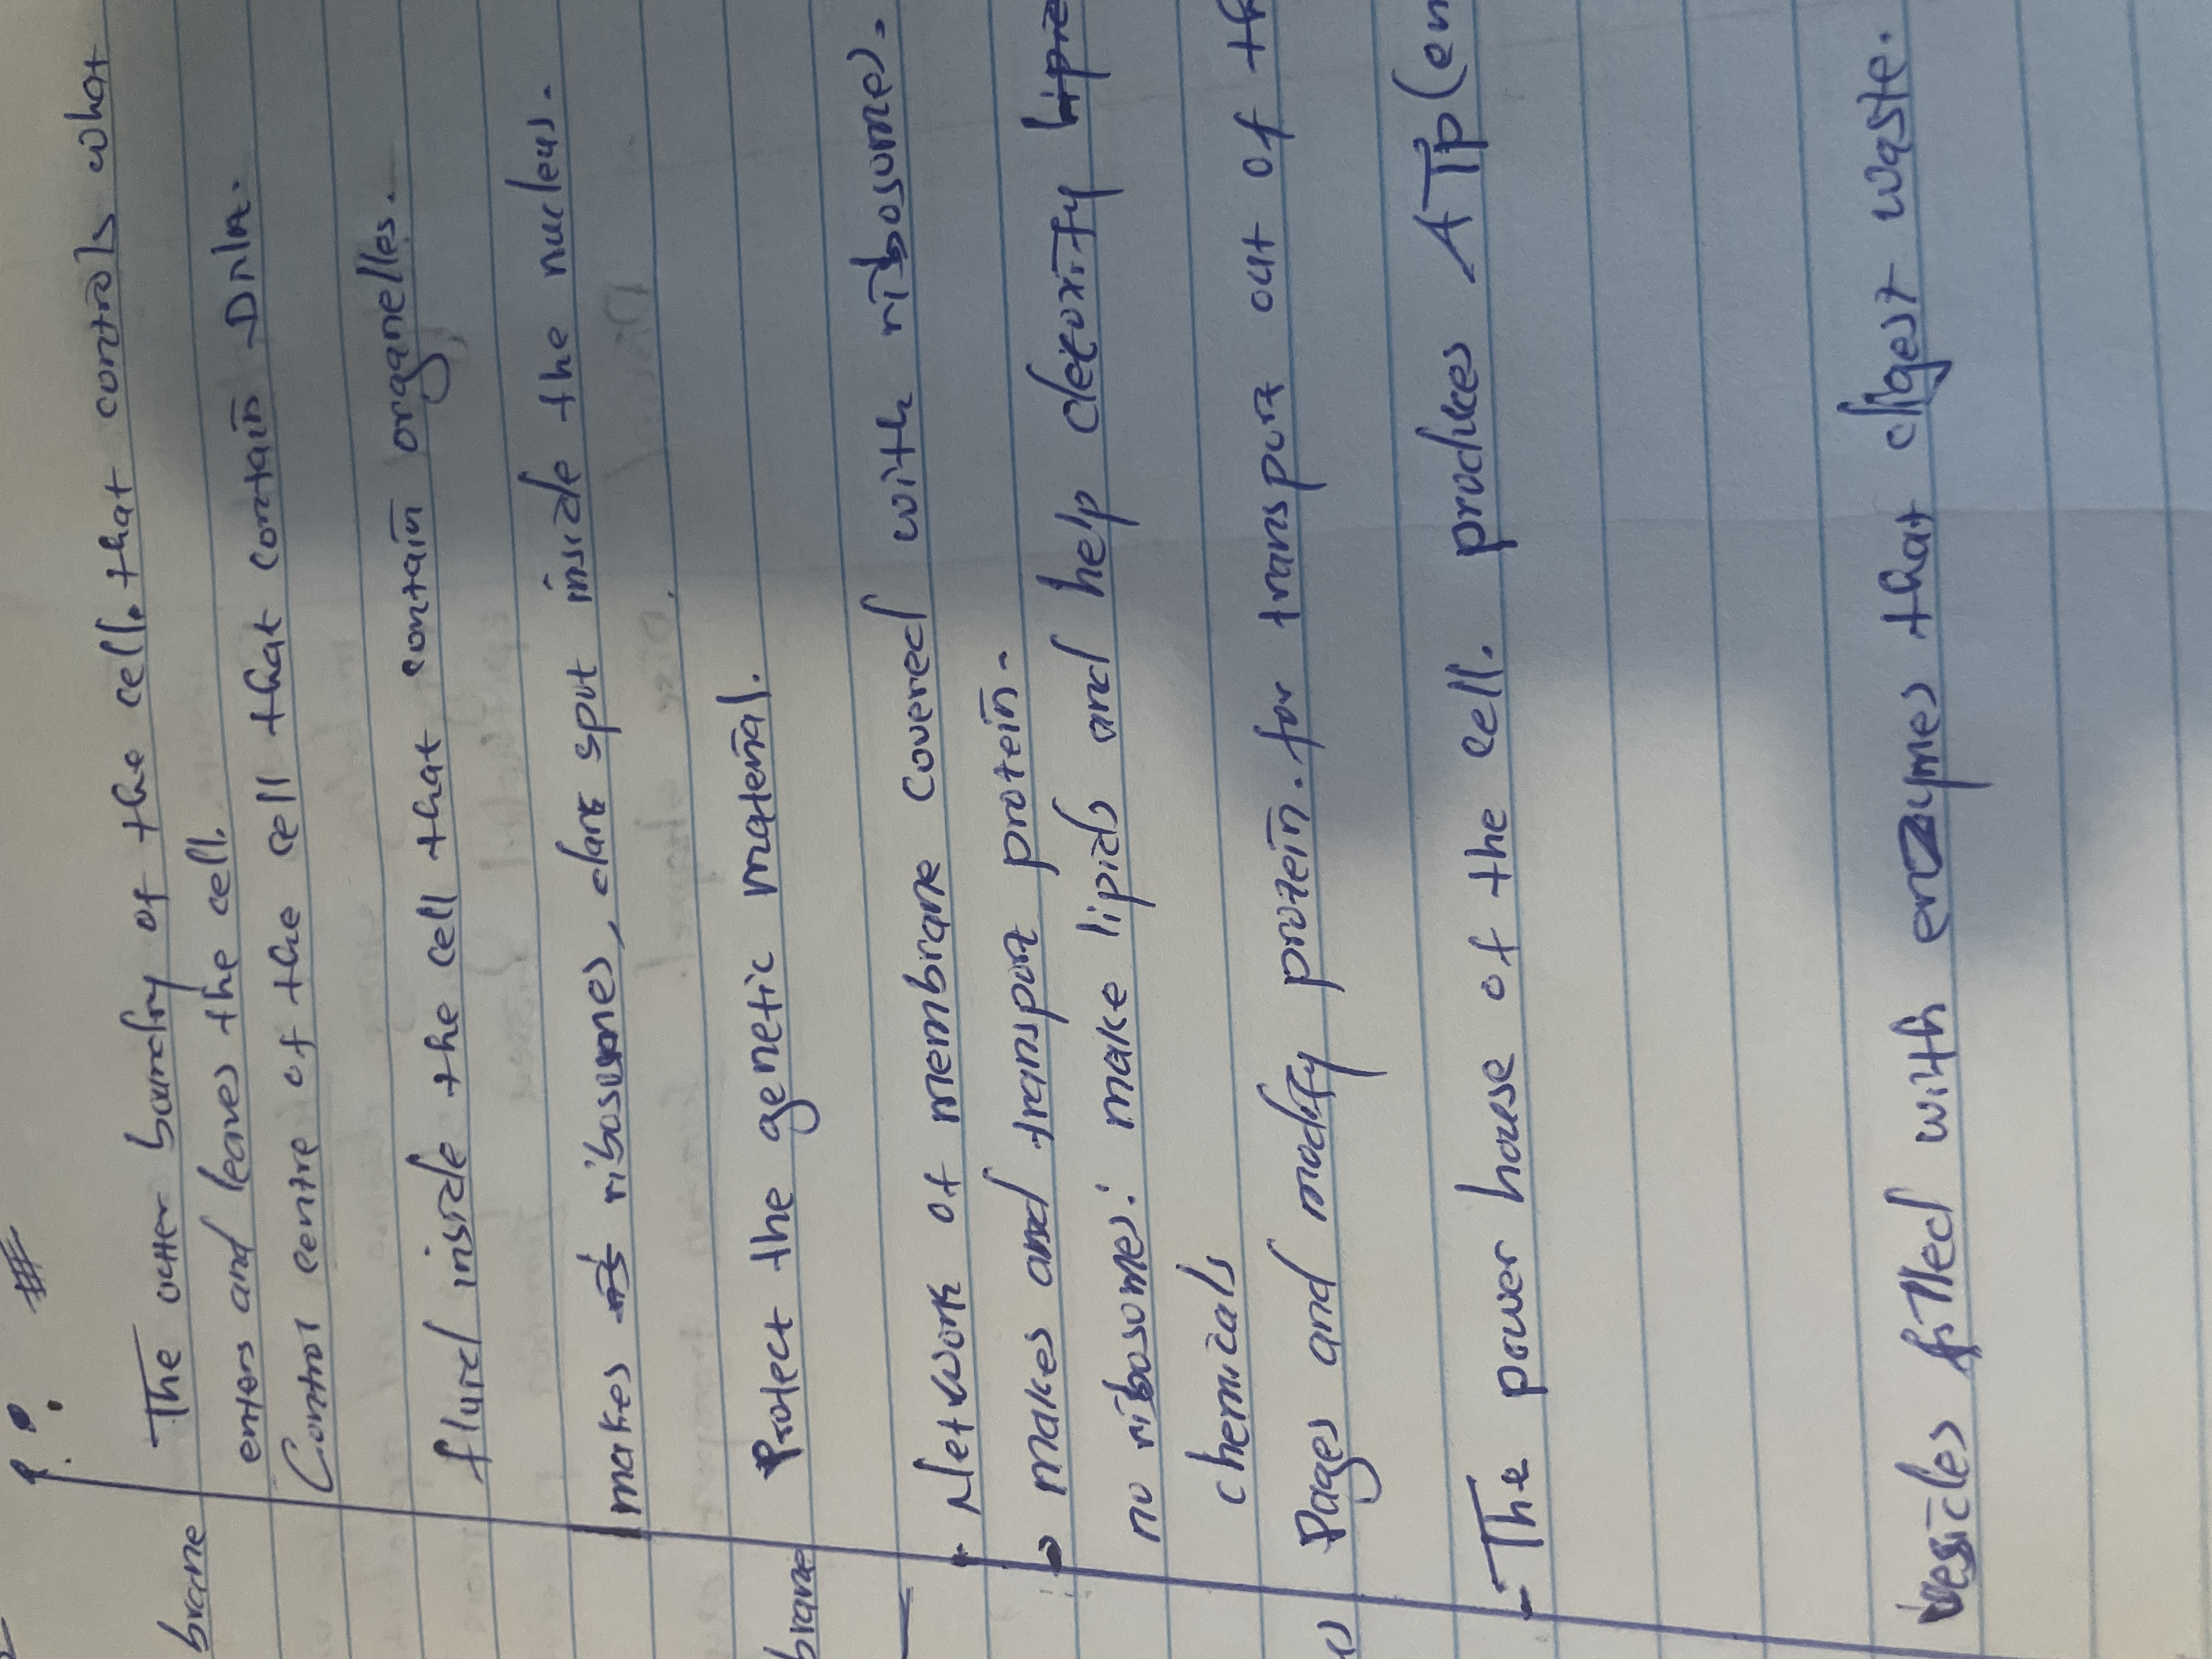 brane The outter boundry of the cell. that controls what
enters and leaves the cell.
Control centre of the cell that contain DNA.
fluid inside the cell that contain organelles.
makes ribosomes, dark spot inside the nucleus.
brane Protect the genetic material.
Network of membrane covered with ribosomes.
makes and transport protein.
no ribosomes: make lipids and help detoxify
chemicals
Pages and modify protein. for transport out of th
The power house of the cell. produces ATP (en
vesicles filled with enzymes that digest waste.